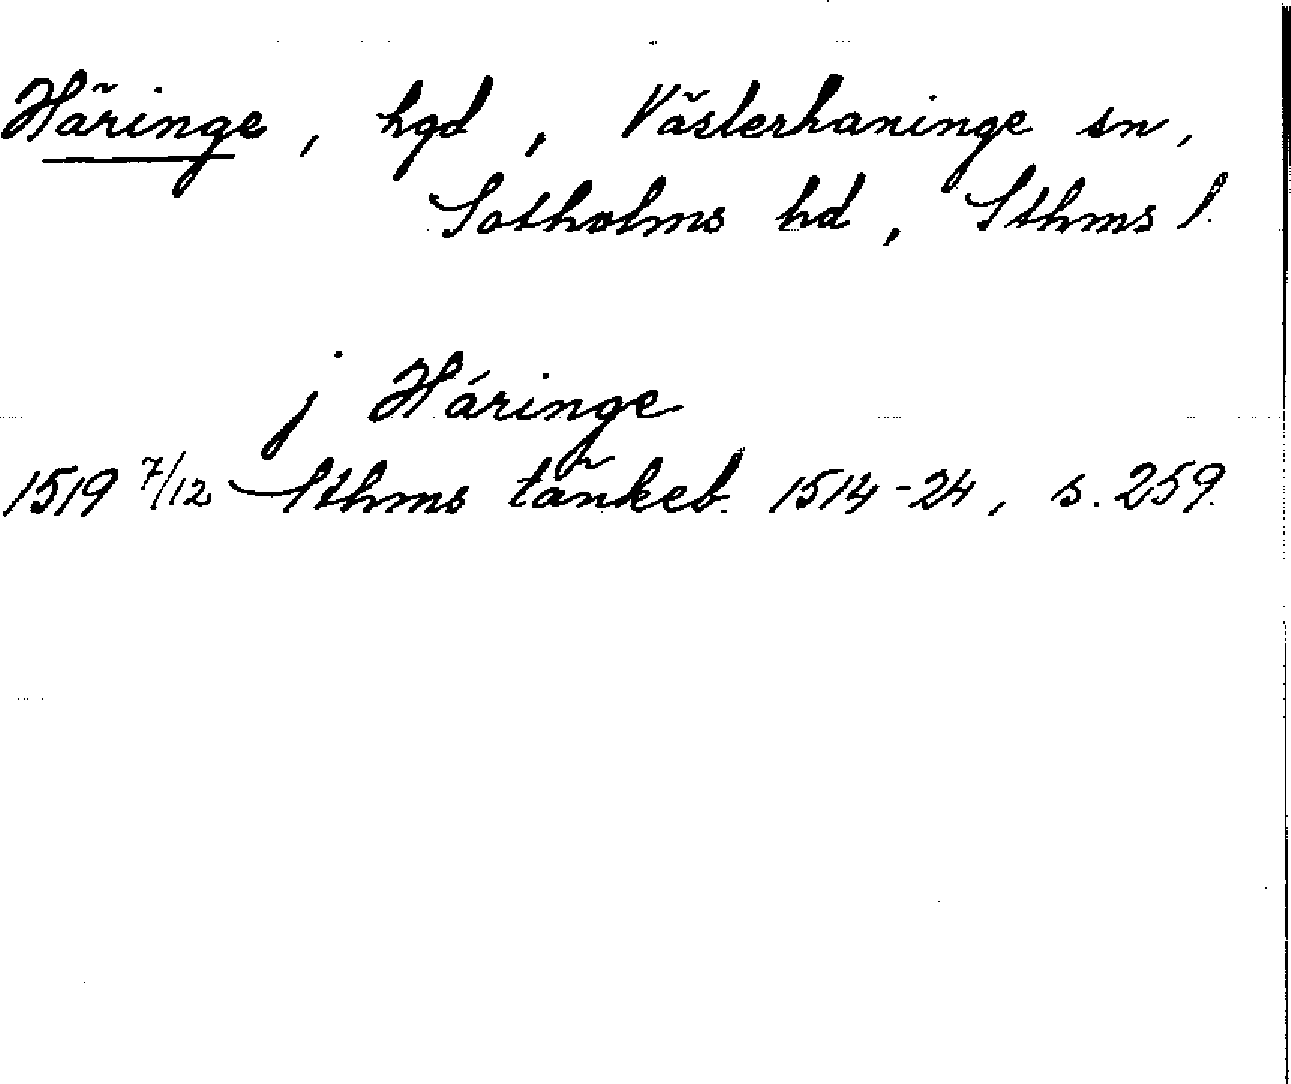 Häringe, hgd, Västerhaninge sn,
Sotholms hd, Sthms l.
j Háringe
1519 7/12 Sthms tänkeb. 1514-24, s. 259.